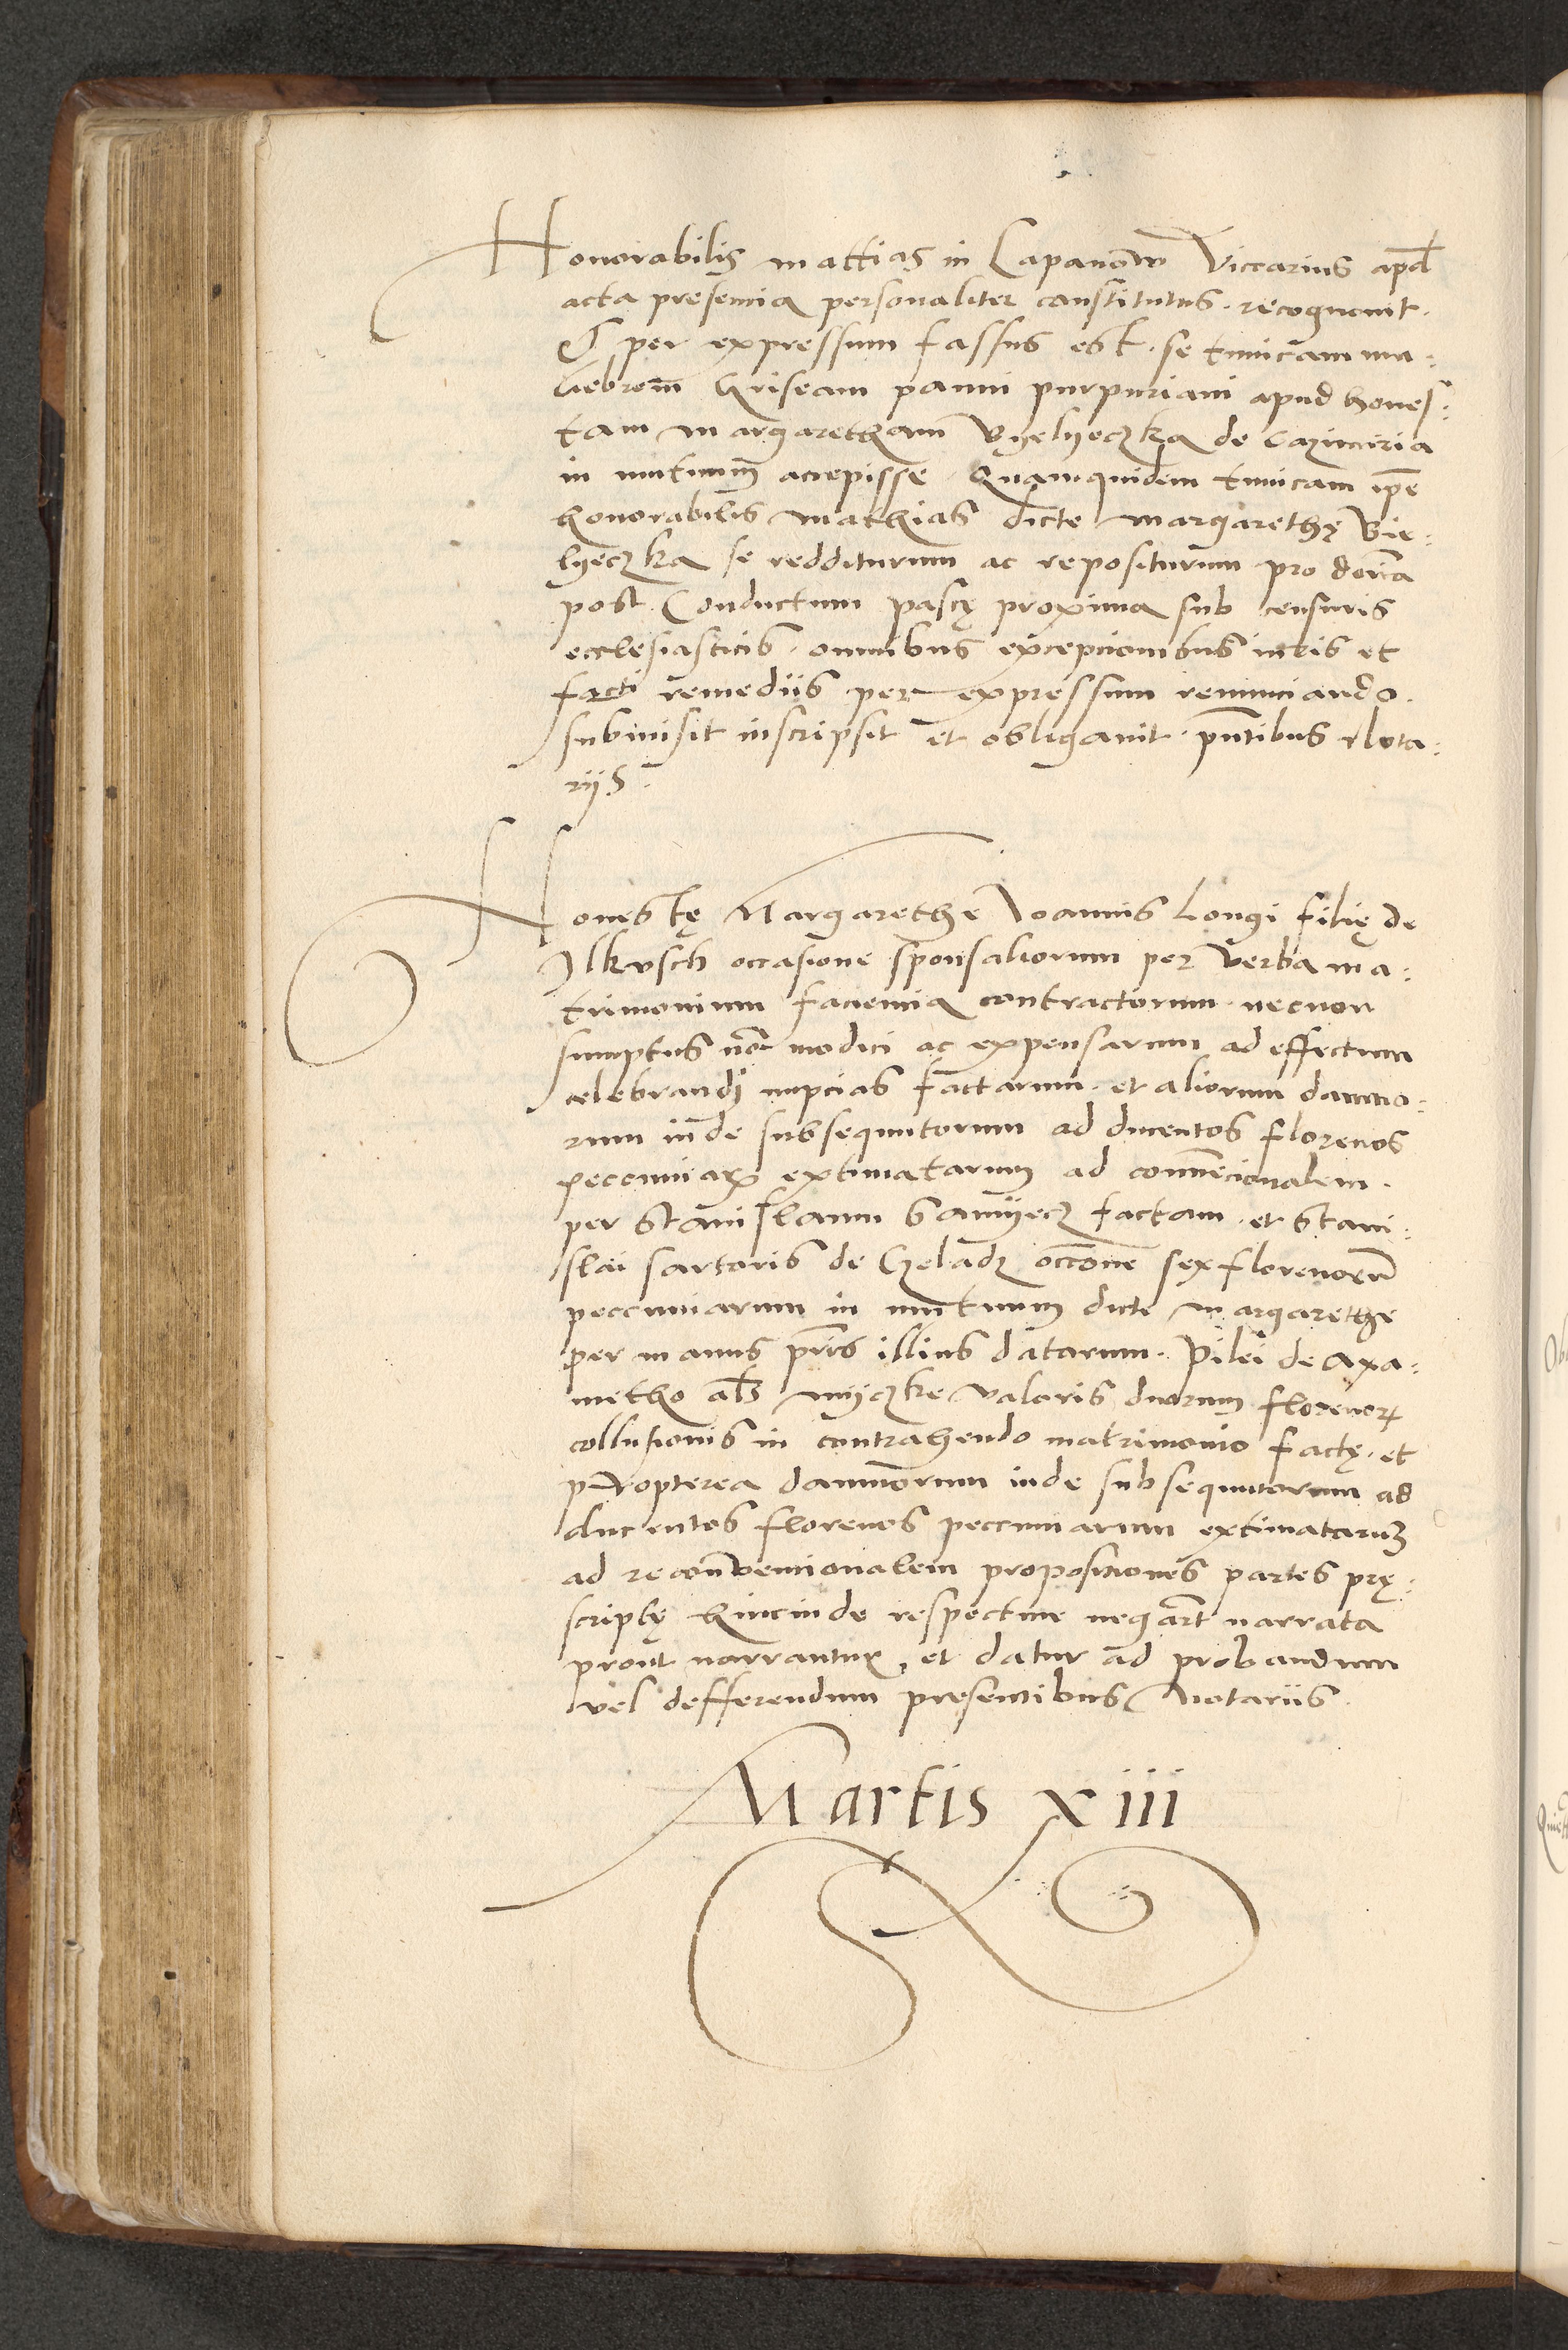 Honorabilis Mattias in Lapanow Viccarius apd
acta presencia personaliter constitutus. recognovit.
Et per expressum fassus est. se tunicam mu:
liebrem griseam panni purpuriani apud hones:
tam Margaretham Byelyeczka de Cazimiria
in mutuum accepisse. Quamquidem tunicam ipe
honorabilis Mathias dicte Margarethę Bie:
lyeczka se redditurum ac repositurum pro doica
post Conductum pascę proxima sub censuris
ecclesiasticis. omnibus excepcionibus iuris et
facti remediis per expressum renunciando.
submisit inscripsit et obligavit. pntibus Nota:
rijs.
Honestę Margarethe Ioannis Longi filię de
Ilkusch occasione sponsaliorum per verba ma:
trimonium faciencia contractorum. necnon
sumptus non modici ac expensarum ad effectum
celebrandi nupcias factarum. et aliorum damno:
rum inde subsequutorum ad ducentos florenos
peccuniarum extimatarum ad convencionalem.
per Stanislaum Samyecz factam. et Stani:
slai sartoris de Czeladz occone sex florenorum
peccuniarum in mutuum dicte Margarethe
per manus pris illius datarum. Pilei de axa:
metho als myczke valoris duorum florenorum
collusionis in contrahendo matrimonio factę. et
propterea damnorum inde subsequutorum ad
ducentos florenos peccuniarum extimatarum
ad reconvencionalem propositiones partes prę:
scriptę hincinde respective negant narrata
prout narrantur, et datur ad probandum
vel defferendum presentibus Notariis.
Martis xiii